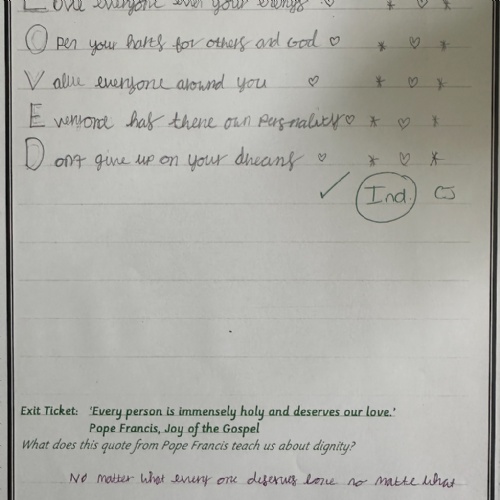 Love everyone even your enemys
Open your harts for others and God
Value everyone around you
Everyone has there own personality
Dont give up on your dreams
Ind.
Exit Ticket: 'Every person is immensely holy and deserves our love.'
Pope Francis, Joy of the Gospel
What does this quote from Pope Francis teach us about dignity?
No matter what every one deserves love no matte what